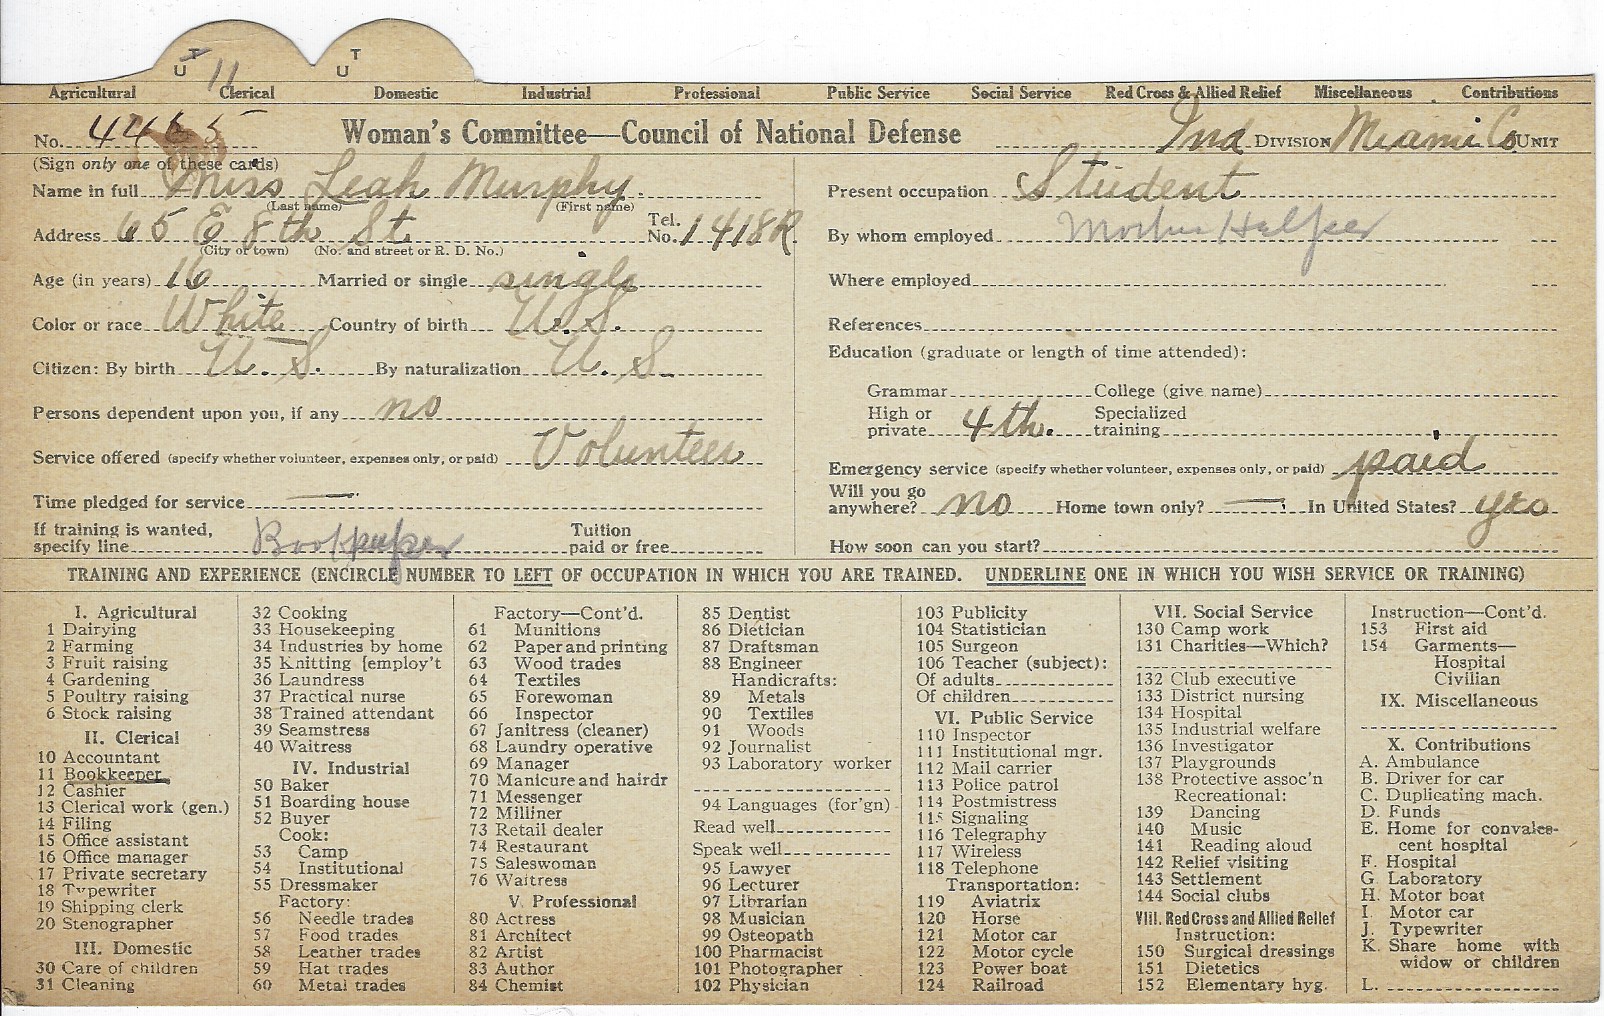 T U T U
11
Agricultural Clerical Domestic Industrial Professional Public Service Social Service Red Cross & Allied Relief Miscellaneous Contributions
No. 44665 Woman's Committee—Council of National Defense Ind DIVISION Miami Co UNIT
(Sign only one of these cards)
Name in full Miss Leah Murphy.
(Last name) (First name)
Address 65 E 8th St Tel. No. 1418R
(City or town) (No. and street or R. D. No.)
Age (in years) 16 Married or single single
Color or race White Country of birth U. S.
Citizen: By birth U. S. By naturalization U. S.
Persons dependent upon you, if any no
Service offered (specify whether volunteer, expenses only, or paid) Volunteer
Time pledged for service —
If training is wanted, specify line Bookkeeper Tuition paid or free
Present occupation Student
By whom employed Mothers Helper
Where employed
References
Education (graduate or length of time attended):
Grammar College (give name)
High or private 4th. Specialized training
Emergency service (specify whether volunteer, expenses only, or paid) paid
Will you go anywhere? no Home town only? — In United States? yes
How soon can you start?
TRAINING AND EXPERIENCE (ENCIRCLE NUMBER TO LEFT OF OCCUPATION IN WHICH YOU ARE TRAINED. UNDERLINE ONE IN WHICH YOU WISH SERVICE OR TRAINING)
I. Agricultural
1 Dairying
2 Farming
3 Fruit raising
4 Gardening
5 Poultry raising
6 Stock raising
II. Clerical
10 Accountant
11 Bookkeeper
12 Cashier
13 Clerical work (gen.)
14 Filing
15 Office assistant
16 Office manager
17 Private secretary
18 Typewriter
19 Shipping clerk
20 Stenographer
III. Domestic
30 Care of children
31 Cleaning
32 Cooking
33 Housekeeping
34 Industries by home
35 Knitting [employ't
36 Laundress
37 Practical nurse
38 Trained attendant
39 Seamstress
40 Waitress
IV. Industrial
50 Baker
51 Boarding house
52 Buyer
Cook:
53 Camp
54 Institutional
55 Dressmaker
Factory:
56 Needle trades
57 Food trades
58 Leather trades
59 Hat trades
60 Metal trades
Factory—Cont'd.
61 Munitions
62 Paper and printing
63 Wood trades
64 Textiles
65 Forewoman
66 Inspector
67 Janitress (cleaner)
68 Laundry operative
69 Manager
70 Manicure and hairdr
71 Messenger
72 Milliner
73 Retail dealer
74 Restaurant
75 Saleswoman
76 Waitress
V. Professional
80 Actress
81 Architect
82 Artist
83 Author
84 Chemist
85 Dentist
86 Dietician
87 Draftsman
88 Engineer
Handicrafts:
89 Metals
90 Textiles
91 Woods
92 Journalist
93 Laboratory worker
94 Languages (for'gn)
Read well
Speak well
95 Lawyer
96 Lecturer
97 Librarian
98 Musician
99 Osteopath
100 Pharmacist
101 Photographer
102 Physician
103 Publicity
104 Statistician
105 Surgeon
106 Teacher (subject):
Of adults
Of children
VI. Public Service
110 Inspector
111 Institutional mgr.
112 Mail carrier
113 Police patrol
114 Postmistress
115 Signaling
116 Telegraphy
117 Wireless
118 Telephone
Transportation:
119 Aviatrix
120 Horse
121 Motor car
122 Motor cycle
123 Power boat
124 Railroad
VII. Social Service
130 Camp work
131 Charities—Which?
132 Club executive
133 District nursing
134 Hospital
135 Industrial welfare
136 Investigator
137 Playgrounds
138 Protective assoc'n
Recreational:
139 Dancing
140 Music
141 Reading aloud
142 Relief visiting
143 Settlement
144 Social clubs
VIII. Red Cross and Allied Relief
Instruction:
150 Surgical dressings
151 Dietetics
152 Elementary hyg.
Instruction—Cont'd.
153 First aid
154 Garments—
Hospital
Civilian
IX. Miscellaneous
X. Contributions
A. Ambulance
B. Driver for car
C. Duplicating mach.
D. Funds
E. Home for convales-
cent hospital
F. Hospital
G. Laboratory
H. Motor boat
I. Motor car
J. Typewriter
K. Share home with
widow or children
L.